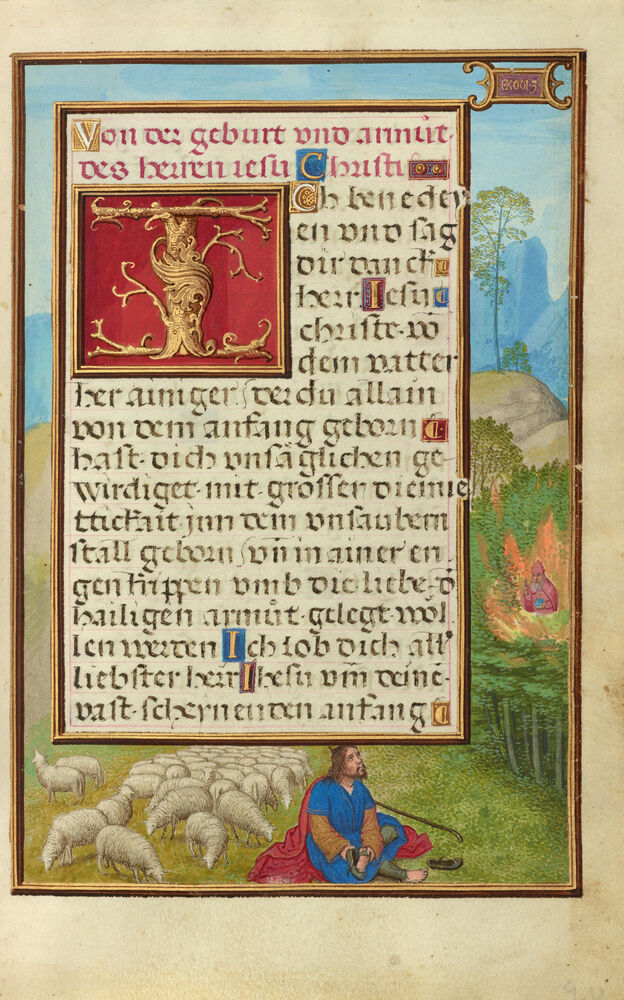 EXODI·3
Von der geburt vnd armůt·
des herren iesu Christi
Ich benedey
en vnd sag
dir danck
herr Iesu
christe· vō
dem vatter
her ainiger/ der du allain
von dem anfang geborn
hast· dich vnsäglichen ge-
wirdiget· mit· grosser diemie
ttickait· jnn dem vnsaubern
stall geborn/ vn̄ in ainer en-
gen krippen vmb die liebe· d̄
hailigen armůt· gelegt· wöl-
len werden Ich lob dich all'
liebster herr Ihesu vm̄ deinē·
vast· scheynenden anfang